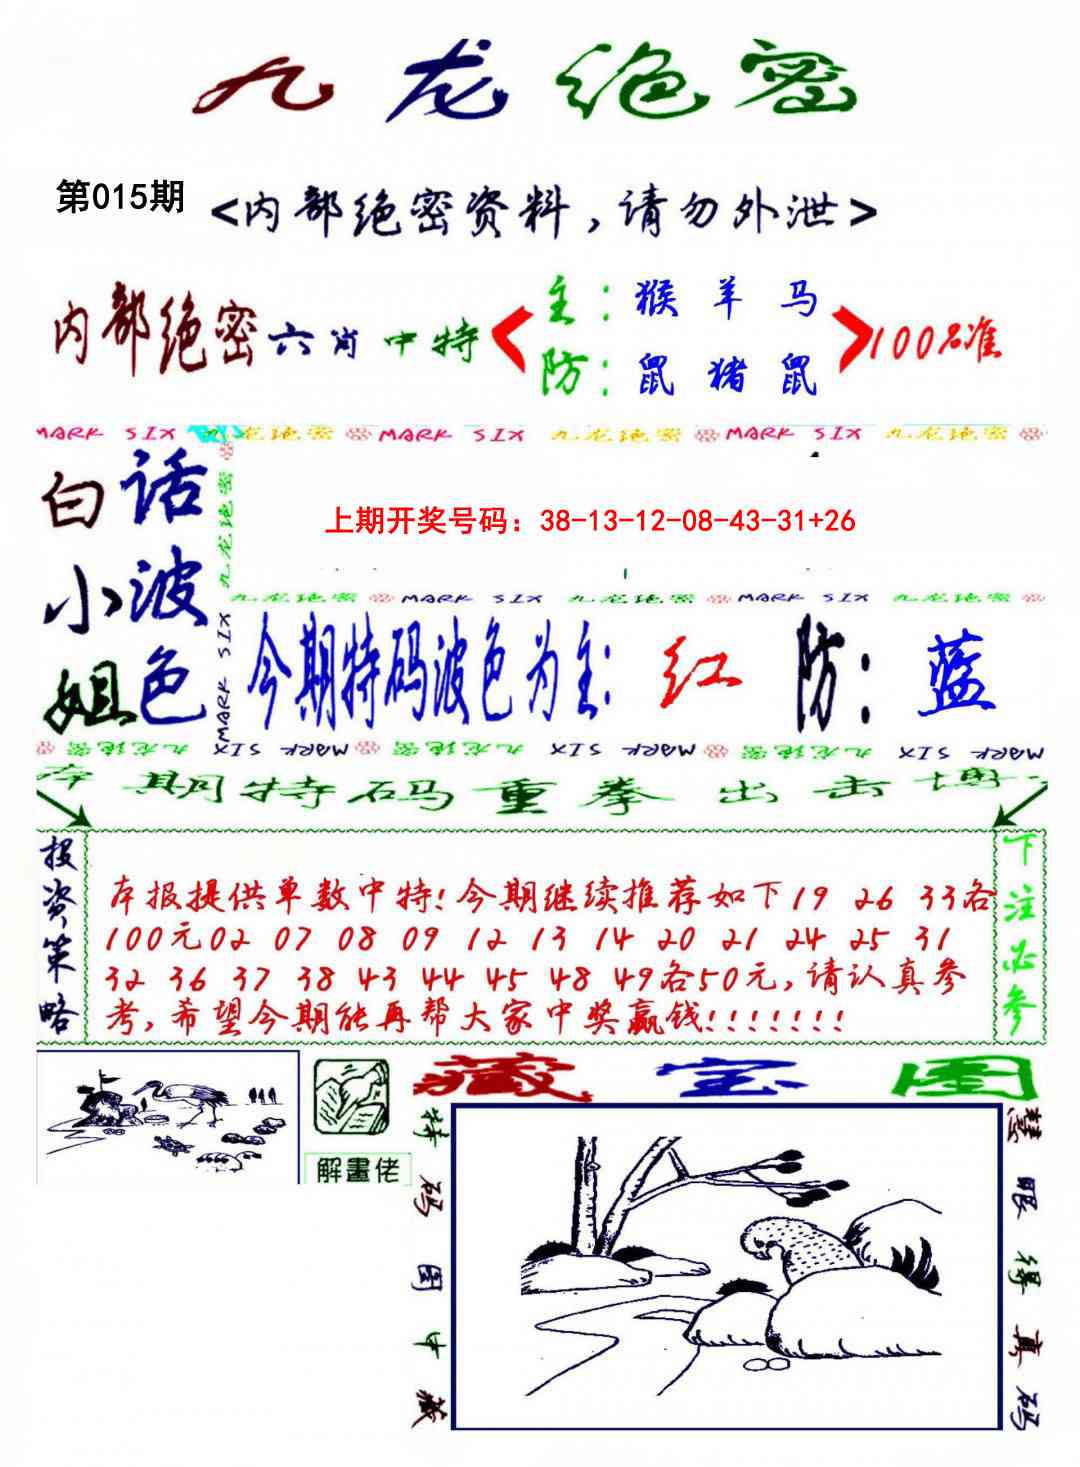 九龙绝密
第015期
<内部绝密资料,请勿外泄>
主:猴 羊 马
内部绝密六肖中特< >100%准
防:鼠 猪 鼠
MARK SIX 九龙绝密 MARK SIX 九龙绝密 MARK SIX 九龙绝密
白话
小波
姐色
九龙绝密
MARK SIX
上期开奖号码：38-13-12-08-43-31+26
九龙绝密 MARK SIX 九龙绝密 MARK SIX 九龙绝密
今期特码波色为主: 红 防: 蓝
九龙绝密 MARK SIX 九龙绝密 MARK SIX 九龙绝密 MARK SIX
本期特码重拳出击博
投资策略
本报提供单数中特!今期继续推荐如下19 26 33各
100元02 07 08 09 12 13 14 20 21 24 25 31
32 36 37 38 43 44 45 48 49各50元,请认真参
考,希望今期能再帮大家中奖赢钱!!!!!!!
下注必参
解畫佬
藏宝图
特码图中藏
慧眼得真码